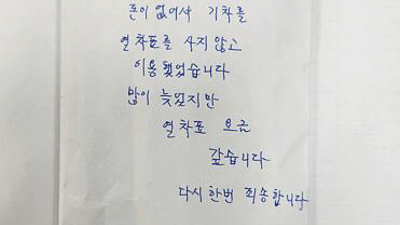 돈이 없어서 기차를
열차표를 사지 않고
이용했었습니다
많이 늦었지만
열차표 요금
갚습니다
다시 한번 죄송합니다